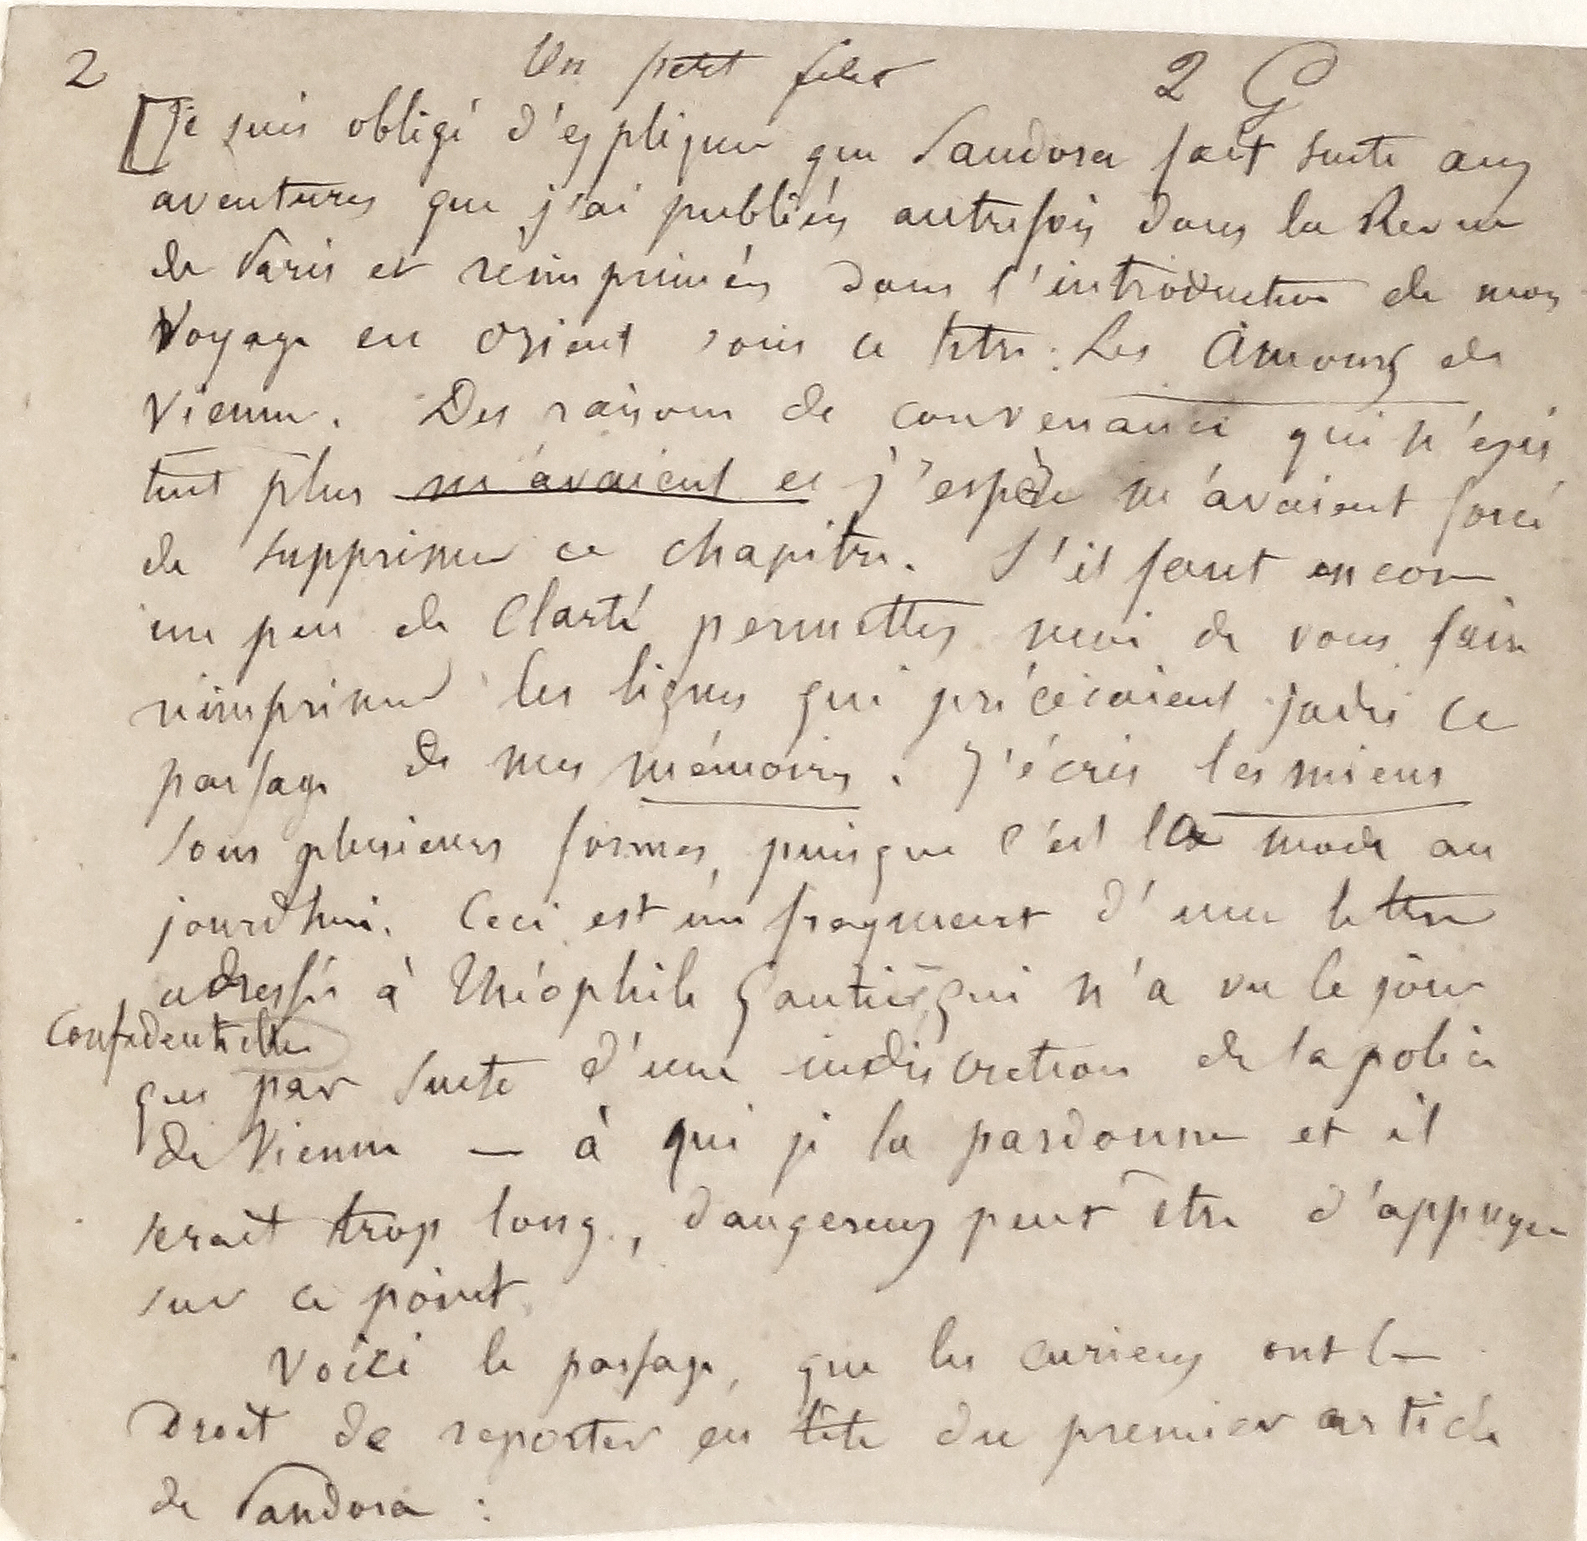 2 Un petit filet 2 G
[Je suis obligé d'expliquer que Pandora fait suite aux
aventures que j'ai publiées autrefois dans la Revue
de Paris et réimprimées dans l'introduction de mon
Voyage en Orient sous ce titre : Les Amours de
Vienne. Des raisons de convenance qui n'exis
tent plus m'avaient et j'espère m'avaient forcé
de supprimer ce chapitre. S'il faut encore
un peu de clarté permettez moi de vous faire
réimprimer les lignes qui précédaient jadis ce
passage de mes mémoires. J'écris les miens
sous plusieurs formes, puisque c'est la mode au
jourdhui. Ceci est un fragment d'une lettre
adressée à Théophile Gautier, qui n'a vu le jour
confidentielle
que par suite d'une indiscrétion de la police
de Vienne — à qui je la pardonne et il
serait trop long, dangereux peut être d'appuyer
sur ce point.
Voici le passage, que les curieux ont le
droit de reporter en tête du premier article
de Pandora :